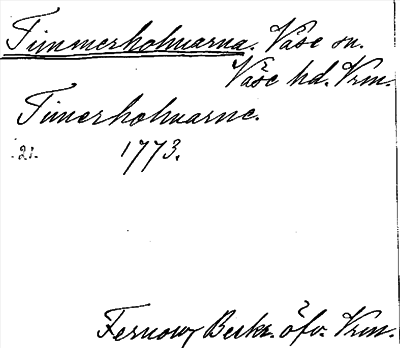 Timmerholmarna. Väse sn.
Väse hd. Vrm.
Timerholmarne.
.2i. 1773.
Fernow, Beskr. öfv. Vrm.